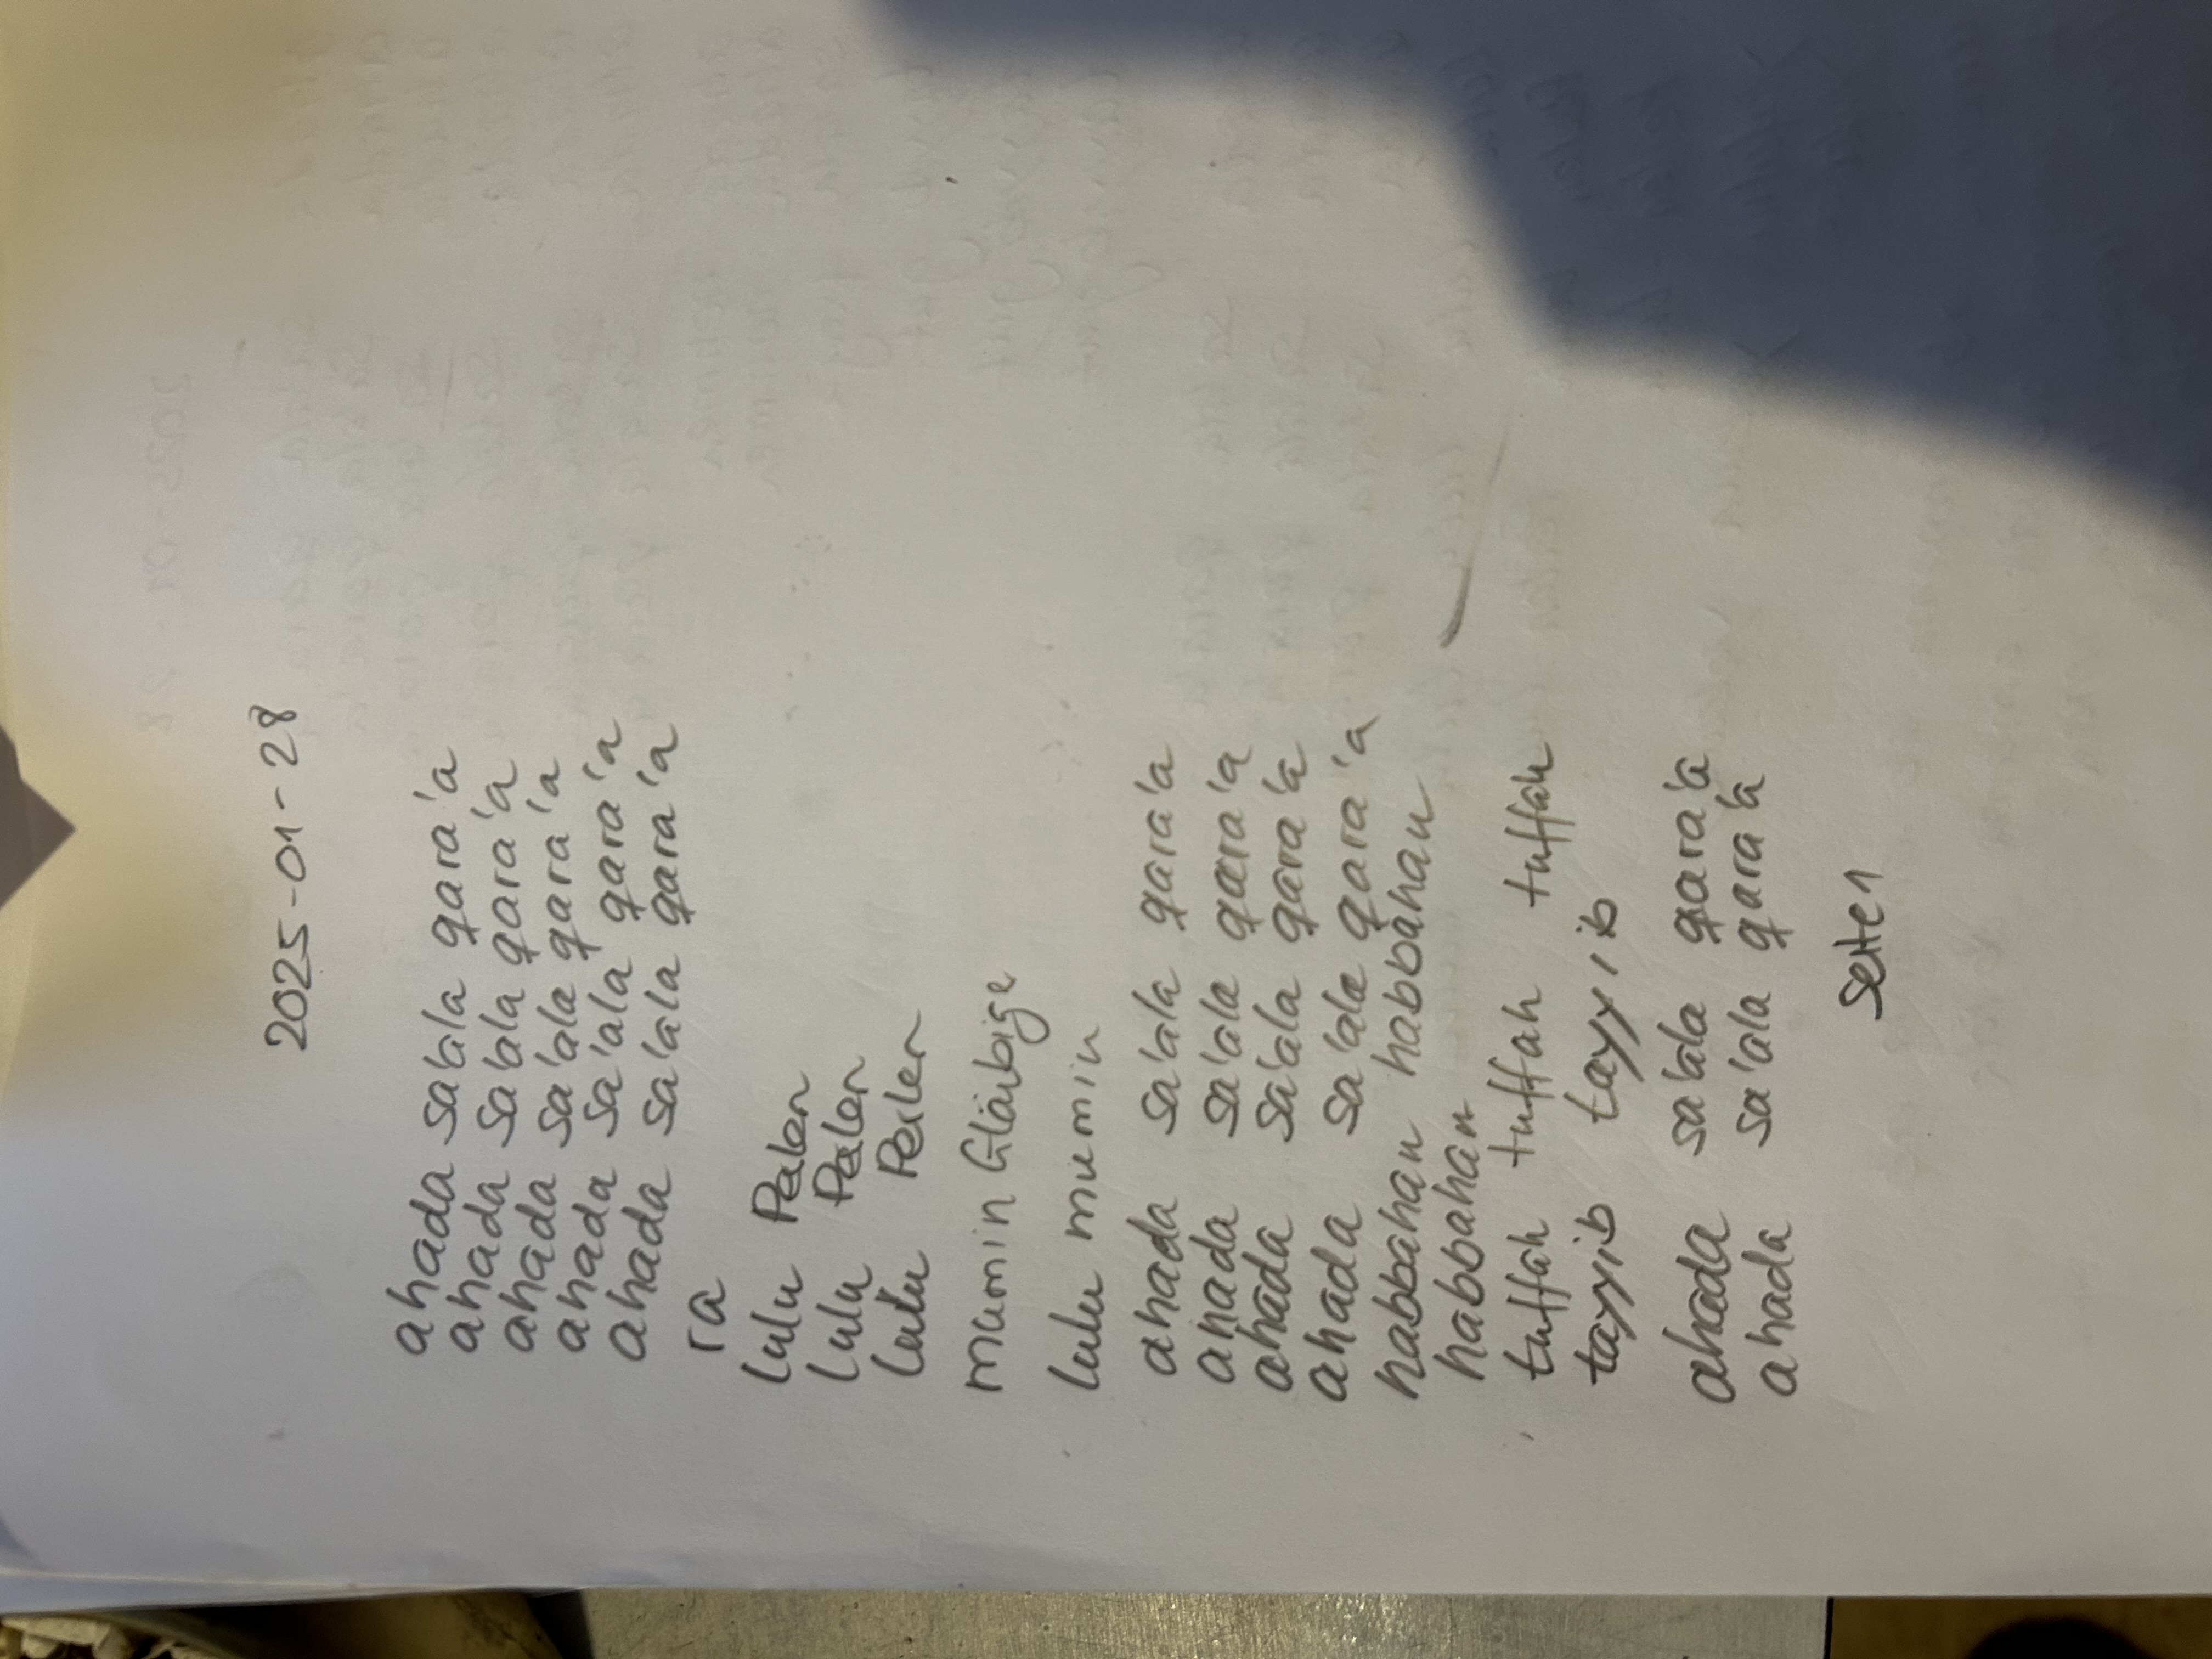 2025-01-28
ahada sa'ala qara'a
ahada sa'ala qara'a
ahada sa'ala qara'a
ahada sa'ala qara'a
ahada sa'ala qara'a
ra
lulu Perlen
lulu Perlen
lulu Perlen
mumin Gläubige
lulu mumin
ahada sa'ala qara'a
ahada sa'ala qara'a
ahada sa'ala qara'a
ahada sa'ala qara'a
habbahan habbahan
habbahan
tuffah tuffah tuffah
tayyib tayyib
ahada sa'ala qara'a
ahada sa'ala qara'a
Seite 1